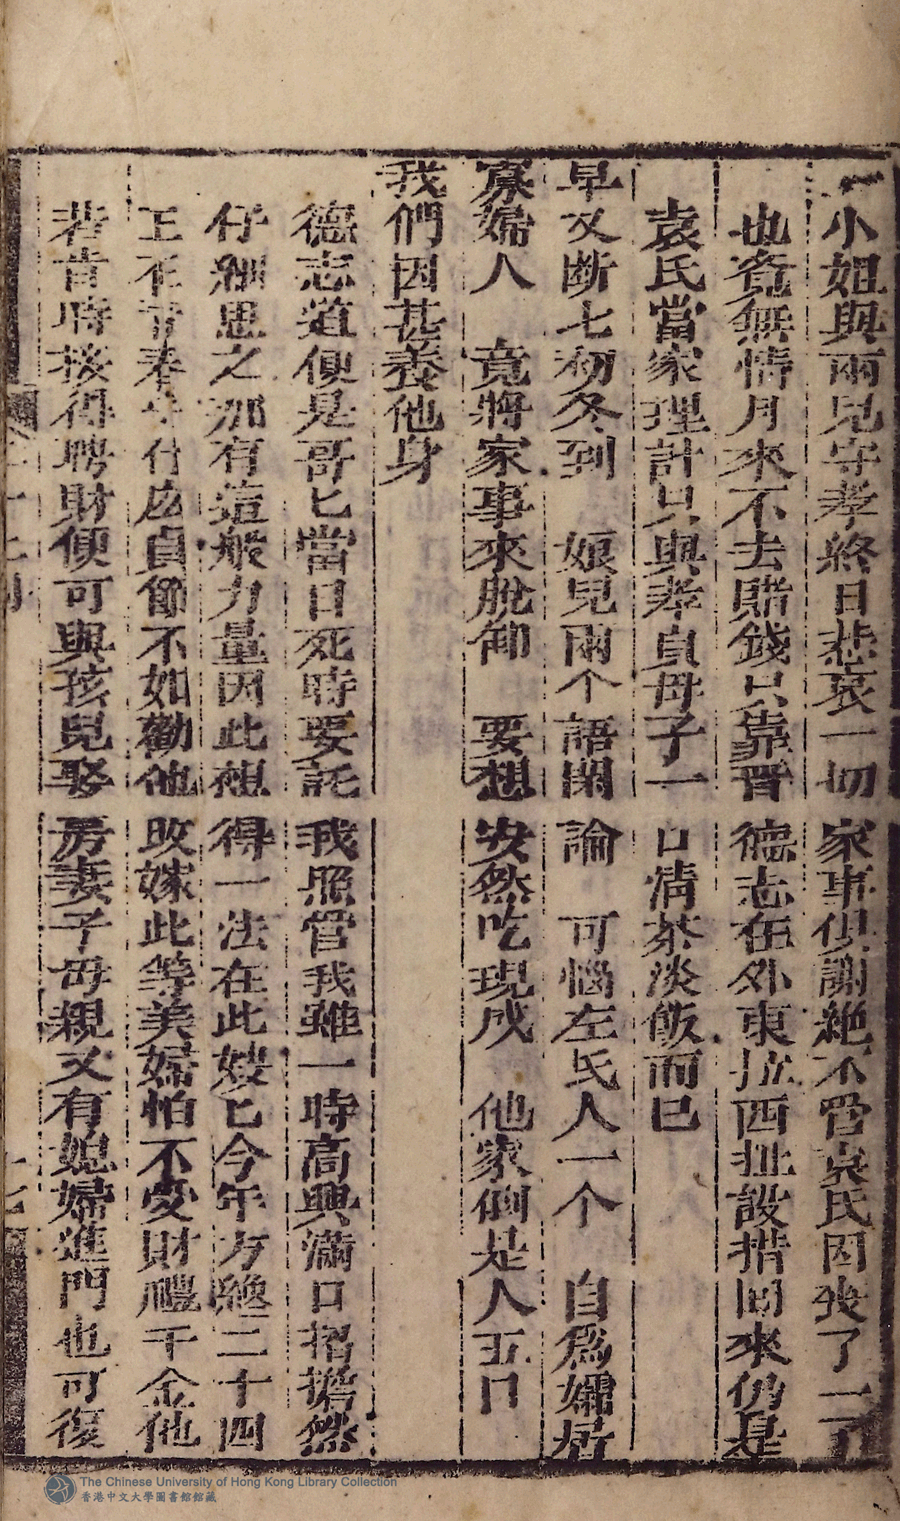 小姐與兩兒守孝終日悲哀一切家事俱謝絕不管袁氏因喪了一了
也覺無情月來不去賭錢只靠晋德志在外東拉西扯設措回來仍是
袁氏當家理計只與孝貞母子一口清茶淡飯而已
早又斷七初冬到 娘兒兩个語閑論 可惱左氏人一个 自爲孀居
寡婦人 竟將家事來脫卸 要想安然吃現成 他家倒是人五口
我們因甚養他身
德志道便是哥匕當日死時要託我照管我雖一時高興滿口招攬然
仔細思之那有這般力量因此想得一法在此嫂匕今年方纔二十四
正在青春守什庅貞節不如勸他改嫁此等美婦怕不受財禮千金他
若肯時接得聘財便可與孩兒娶房妻子母親又有媳婦進門也可復
The Chinese University of Hong Kong Library Collection
香港中文大學圖書館館藏